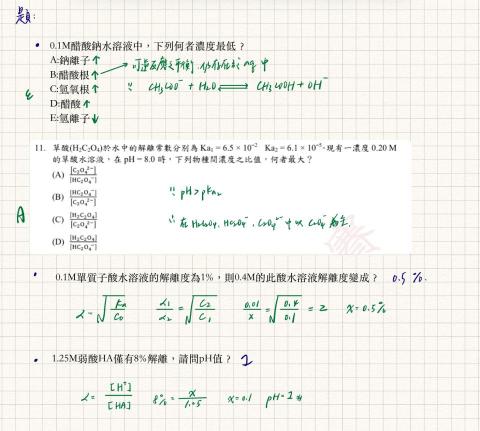 題:
• 0.1M醋酸鈉水溶液中,下列何者濃度最低?
A:鈉離子↑
B:醋酸根↑ 可逆反應之平衡,仍存在於aq中
C:氫氧根↑ ∵ CH₃COO⁻ + H₂O ⇌ CH₃COOH + OH⁻
D:醋酸↑
E:氫離子↓
E
11. 草酸(H₂C₂O₄)於水中的解離常數分別為 Ka₁ = 6.5 × 10⁻² Ka₂ = 6.1 × 10⁻⁵。現有一濃度 0.20 M
的草酸水溶液,在 pH = 8.0 時,下列物種間濃度之比值,何者最大?
(A) [C₂O₄²⁻]/[HC₂O₄⁻]
(B) [HC₂O₄⁻]/[C₂O₄²⁻] ∵ pH > pKa₂
(C) [H₂C₂O₄]/[C₂O₄²⁻] ∴ 在 H₂C₂O₄, HC₂O₄⁻, C₂O₄²⁻ 中以 C₂O₄²⁻ 為主.
(D) [H₂C₂O₄]/[HC₂O₄⁻]
A
• 0.1M單質子酸水溶液的解離度為1%,則0.4M的此酸水溶液解離度變成? 0.5 %.
α = √(Ka/C₀) α₁/α₂ = √(C₂/C₁) 0.01/x = √(0.4/0.1) = 2 x = 0.5%
• 1.25M弱酸HA僅有8%解離,請問pH值? 1
α = [H⁺]/[HA] 8% = x/1.25 x = 0.1 pH = 1 #